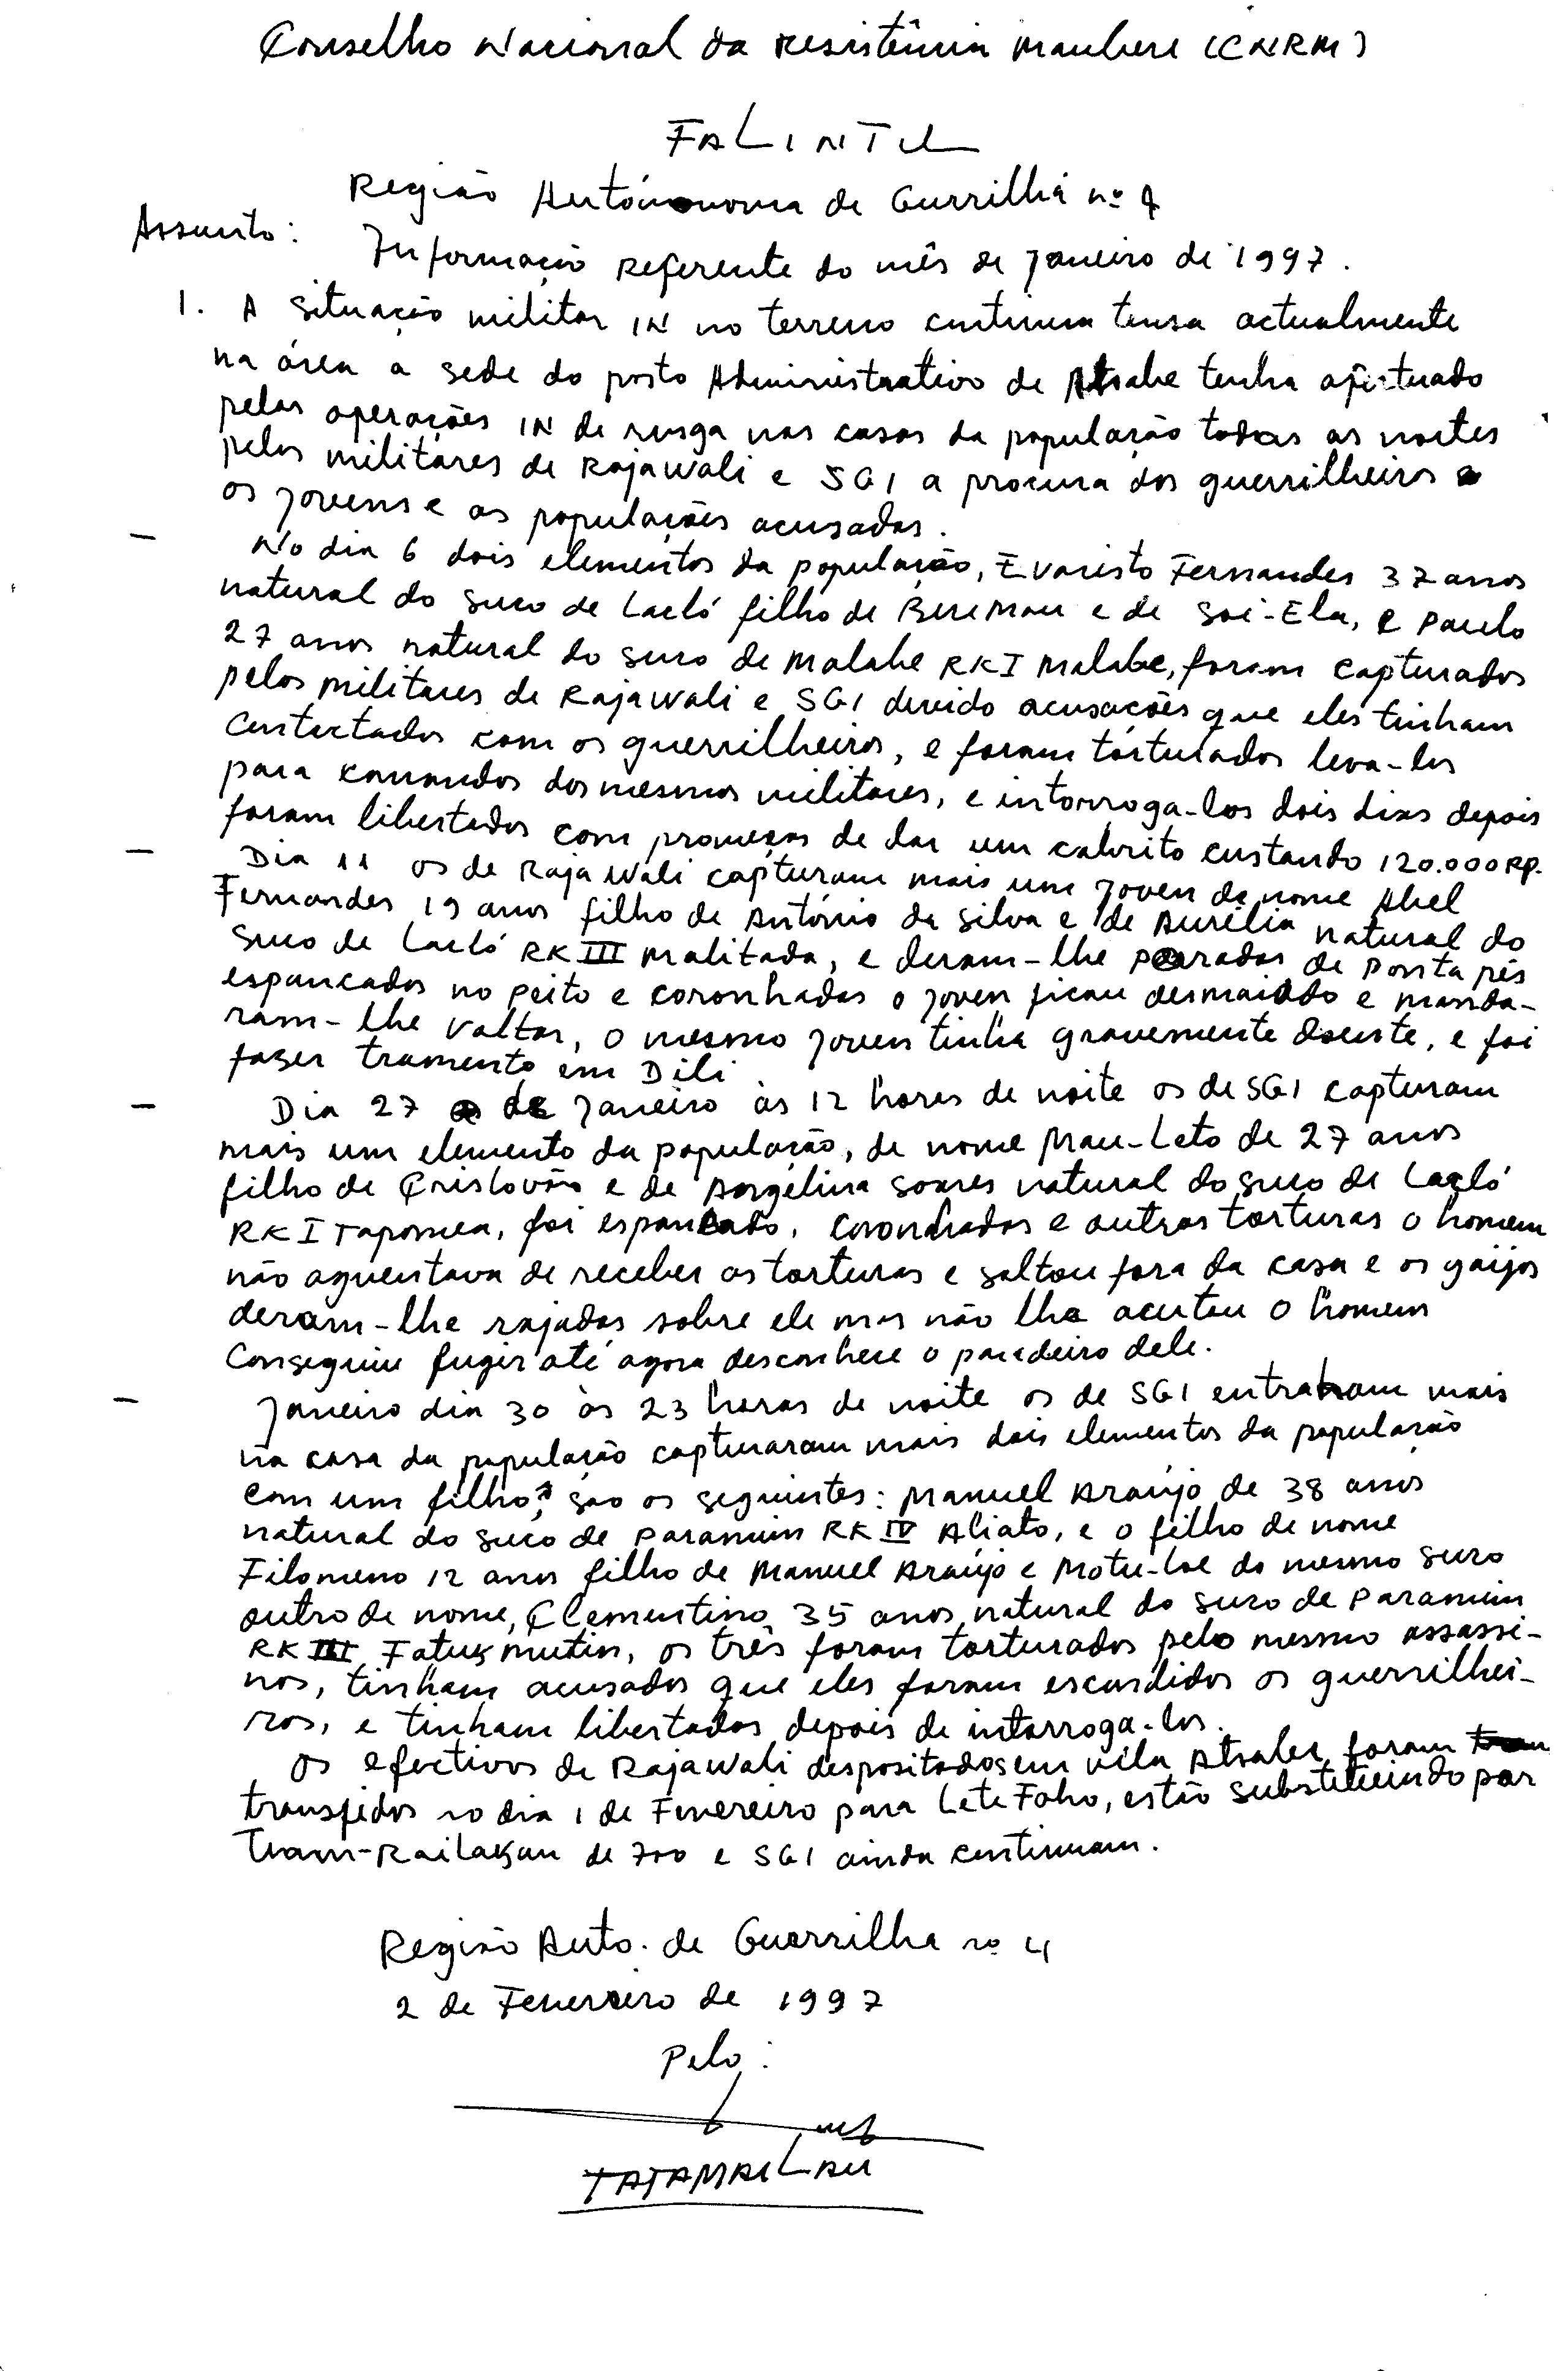 Conselho Nacional da Resistência Maubere (CNRM)
FALINTIL
Região Autónonoma de Gurrilha nº 4
Assunto: Informação referente do mês de Janeiro de 1997.
1. A situação militar IN no terreno continua tensa actualmente
na área a sede do posto Administrativo de Atsabe tenha efectuado
pelas operações IN de rusga nas casas da população todas as noites
pelos militares de Rajawali e SGI a procura dos guerrilheiros e
os jovens e as populações acusadas.
— No dia 6 dois elementos da população, Evaristo Fernandes 37 anos
natural do suco de Lacló filho de Bere Mau e de Soi-Ela, e Paulo
27 anos natural do suco de Malabe RKI Malabe, foram capturados
pelos militares de Rajawali e SGI devido acusacões que eles tinham
contectados com os guerrilheiros, e foram torturados leva-los
para comandos dos mesmos militares, e intorroga-los dois dias depois
foram libertados com promeças de dar um cabrito custando 120.000 RP.
— Dia 11 os de Rajawali capturam mais um joven de nome Abel
Fernandes 19 anos filho de António da Silva e de Aurélia natural do
suco de Lacló RK III Malitada, e deram-lhe poradas de ponta pés
espancados no peito e coronhadas o joven ficou desmaiado e manda-
ram-lhe valtar, o mesmo joven tinha gravemente doente, e foi
faser tramento em Dili.
— Dia 27 de Janeiro às 12 hores de noite os de SGI capturam
mais um elemento da população, de nome Mau-Leto de 27 anos
filho de Cristovão e de Angelina Soares natural do suco de Lacló
RK I Taponea, foi espancado, coronhadas e outras torturas o homem
não aguentava de receber as torturas e saltou fora da casa e os gaijos
deram-lhe rajadas sobre ele mas não lhe acertou o homem
conseguiu fugir até agora desconhece o paradeiro dele.
— Janeiro dia 30 às 23 horas de noite os de SGI entraram mais
na casa da população capturaram mais dois elementos da população
com um filho, são os seguintes: Manuel Araújo de 38 anos
natural do suco de Paramin RK IV Aliato, e o filho de nome
Filomeno 12 anos filho de Manuel Araújo e Motu-Loe do mesmo suco
outro de nome, Clementino 35 anos natural do suco de Paramin
RK III Fatuk mutin, os três foram torturados pelo mesmo assassi-
nos, tinham acusados que eles foram escondidos os guerrilhei-
ros, e tinham libertados depois de intorroga-los.
Os efectivos de Rajawali despositados em vila Atsabe, foram
transfidos no dia 1 de Fevereiro para Lete Foho, estão substituindo por
Team-Railakan de 700 e SGI ainda continuam.
Região Auto. de Guerrilha nº 4
2 de Fevereiro de 1997
Pelo:
TATAMAILAU